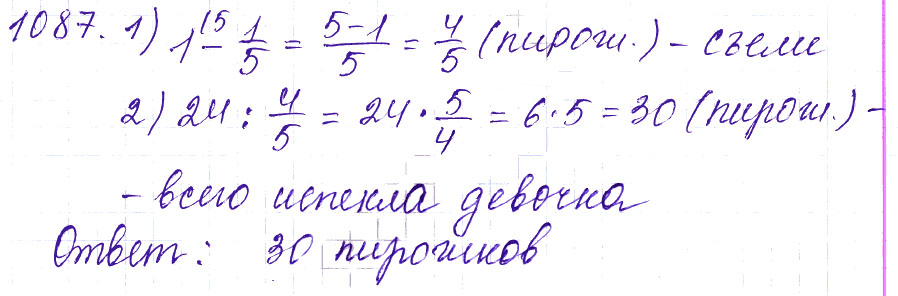 1087. 1) 1^(5 - 1/5 = (5-1)/5 = 4/5 (пирож.) - съели
2) 24 : 4/5 = 24 · 5/4 = 6·5 = 30 (пирож.) -
- всего испекла девочка
Ответ: 30 пирожков